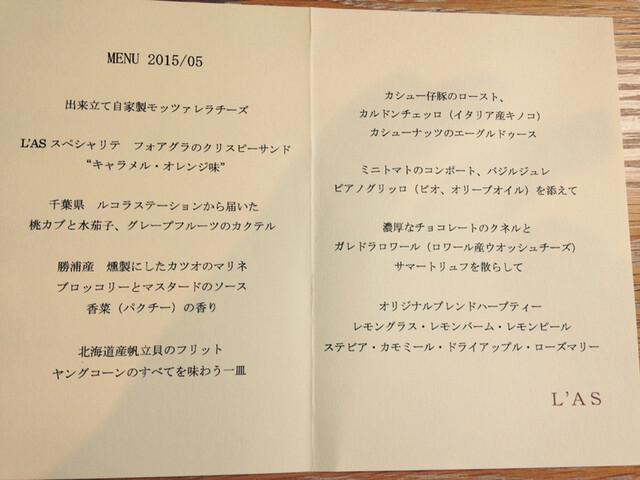 MENU 2015/05
出来立て自家製モッツァレラチーズ
L'AS スペシャリテ　フォアグラのクリスピーサンド
“キャラメル・オレンジ味”
千葉県　ルコラステーションから届いた
桃カブと水茄子、グレープフルーツのカクテル
勝浦産　燻製にしたカツオのマリネ
ブロッコリーとマスタードのソース
香菜（パクチー）の香り
北海道産帆立貝のフリット
ヤングコーンのすべてを味わう一皿
カシュー仔豚のロースト、
カルドンチェッロ（イタリア産キノコ）
カシューナッツのエーグルドゥース
ミニトマトのコンポート、バジルジュレ
ピアノグリッロ（ピオ、オリーブオイル）を添えて
濃厚なチョコレートのクネルと
ガレドラロワール（ロワール産ウオッシュチーズ）
サマートリュフを散らして
オリジナルブレンドハーブティー
レモングラス・レモンバーム・レモンピール
ステビア・カモミール・ドライアップル・ローズマリー
L'AS